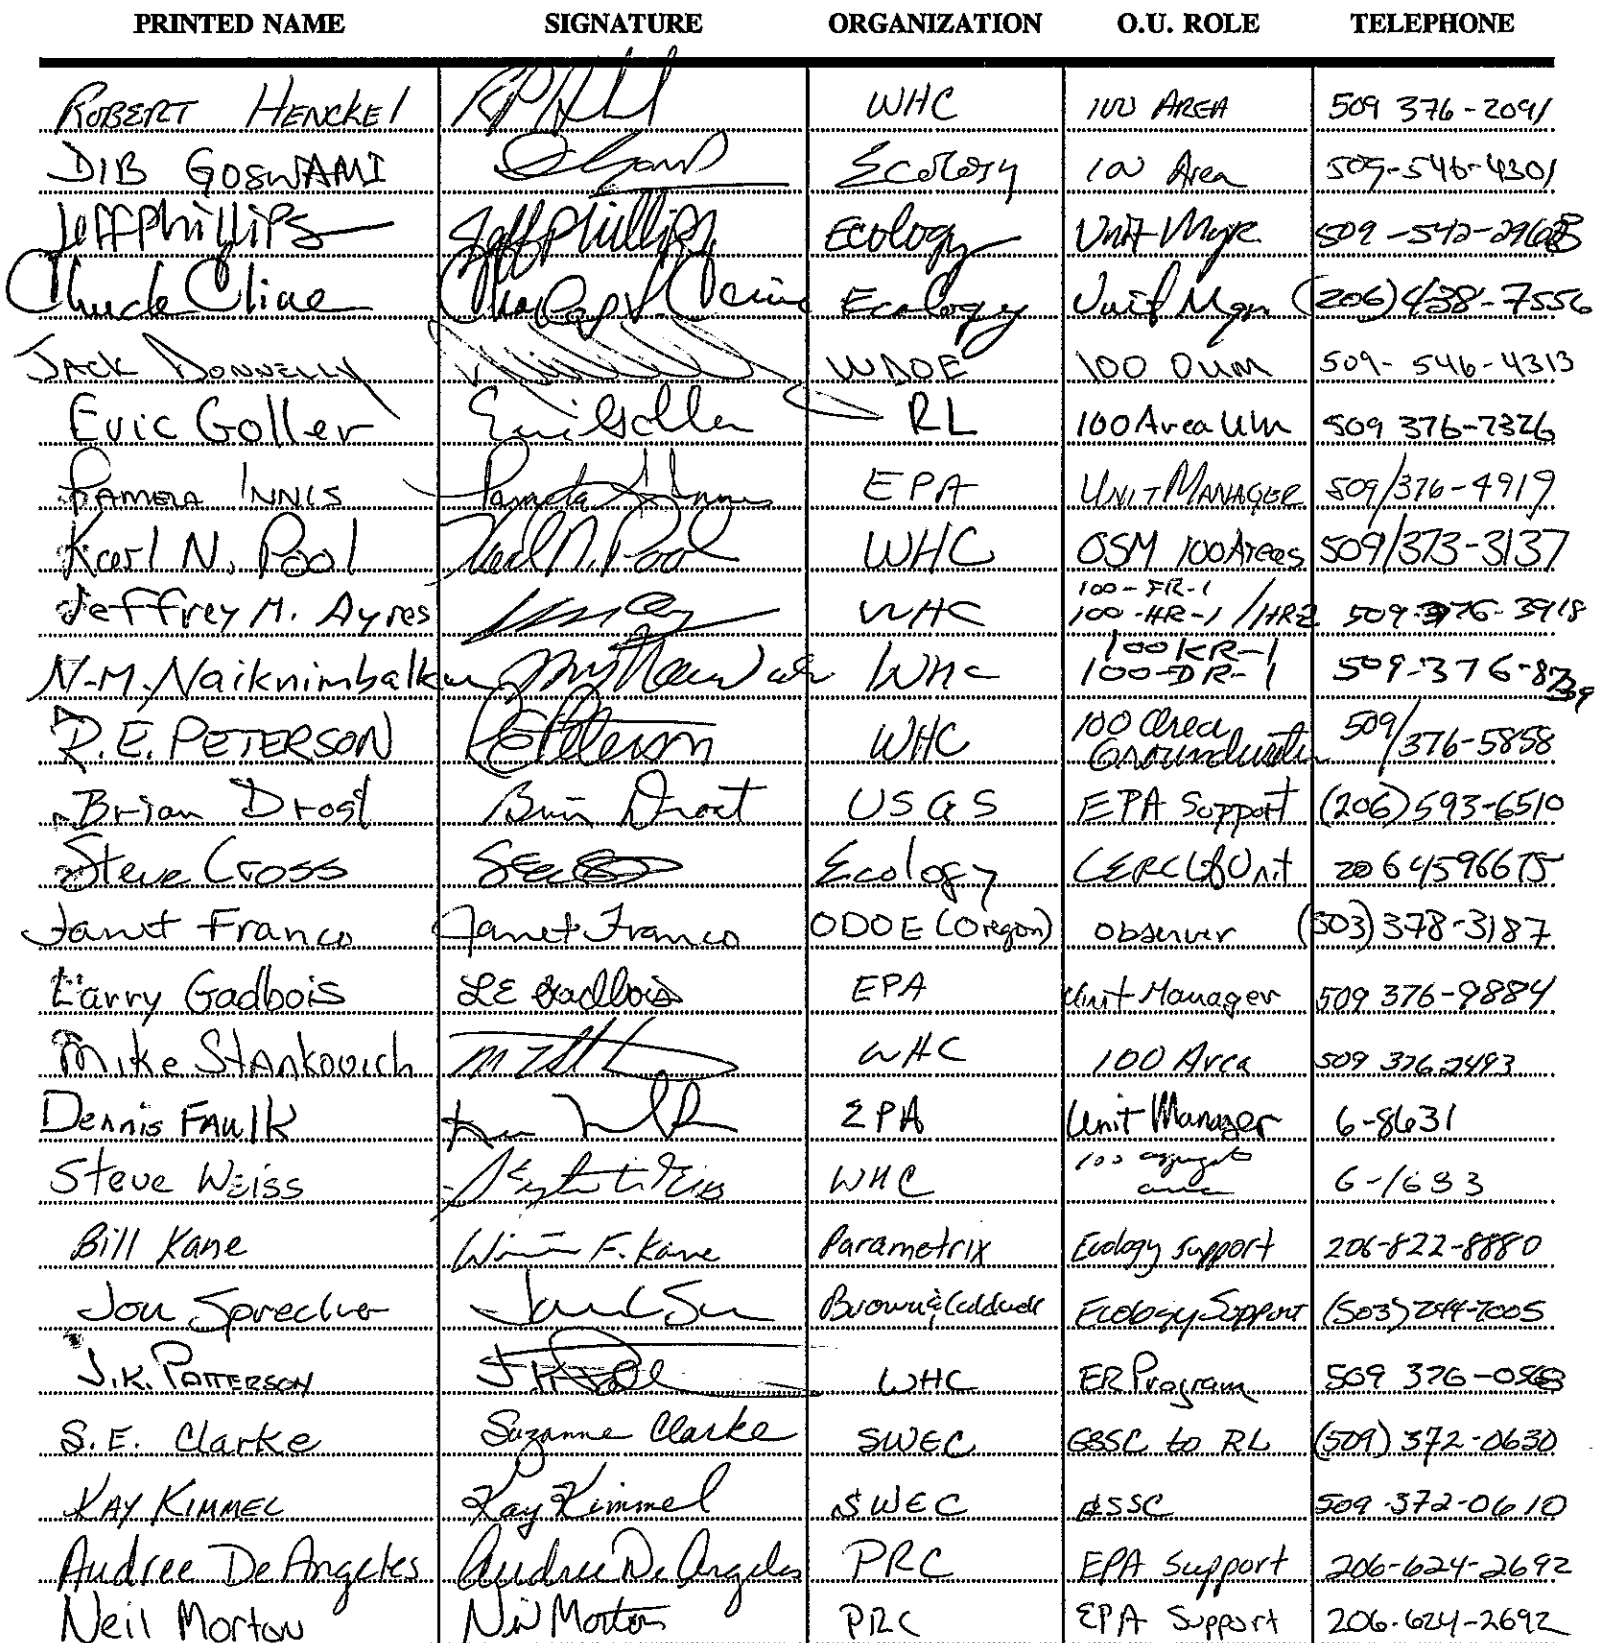 PRINTED NAME SIGNATURE ORGANIZATION O.U. ROLE TELEPHONE
ROBERT HENCKEL WHC 100 AREA 509 376-2091
DIB GOSWAMI Ecology 100 Area 509-546-4301
Jeff Phillips Jeff Phillips Ecology Unit Mgr. 509-542-2968
Chuck Cline Ecology Unit Mgr (206) 438-7556
JACK DONNELLY WDOE 100 OUM 509-546-4313
Eric Goller Eric Goller RL 100 Area UM 509 376-7326
PAMELA INNIS Pamela S. Innis EPA UNIT MANAGER 509/376-4919
Karl N. Pool Karl N. Pool WHC OSM 100 Areas 509/373-3137
Jeffrey M. Ayres WHC 100-FR-1
100-HR-1 /HR2 509-376-3918
N.M. Naiknimbalkar WHC 100 KR-1
100-DR-1 509-376-8739
R.E. PETERSON RE Peterson WHC 100 Area
Groundwater 509/376-5858
Brian Drost Brian Drost USGS EPA Support (206) 593-6510
Steve Cross Ecology CERCLA Unit 206 4596675
Janet Franco Janet Franco ODOE (Oregon) observer (503) 378-3187
Larry Gadbois LE Gadbois EPA Unit Manager 509 376-9884
Mike Stankovich WHC 100 Area 509 376 2493
Dennis FAULK EPA Unit Manager 6-8631
Steve Weiss WHC 100 aggregate
area 6-1683
Bill Kane F. Kane Parametrix Ecology support 206-822-8880
Jon Sprecher Brown & Caldwell Ecology Support (503) 244-7005
J.K. PATTERSON WHC ER Program 509 376-0568
S.E. Clarke Suzanne Clarke SWEC GSSC to RL (509) 372-0630
KAY KIMMEL Kay Kimmel SWEC GSSC 509-372-0610
Audree DeAngeles Audree DeAngeles PRC EPA Support 206-624-2692
Neil Morton Neil Morton PRC EPA Support 206-624-2692